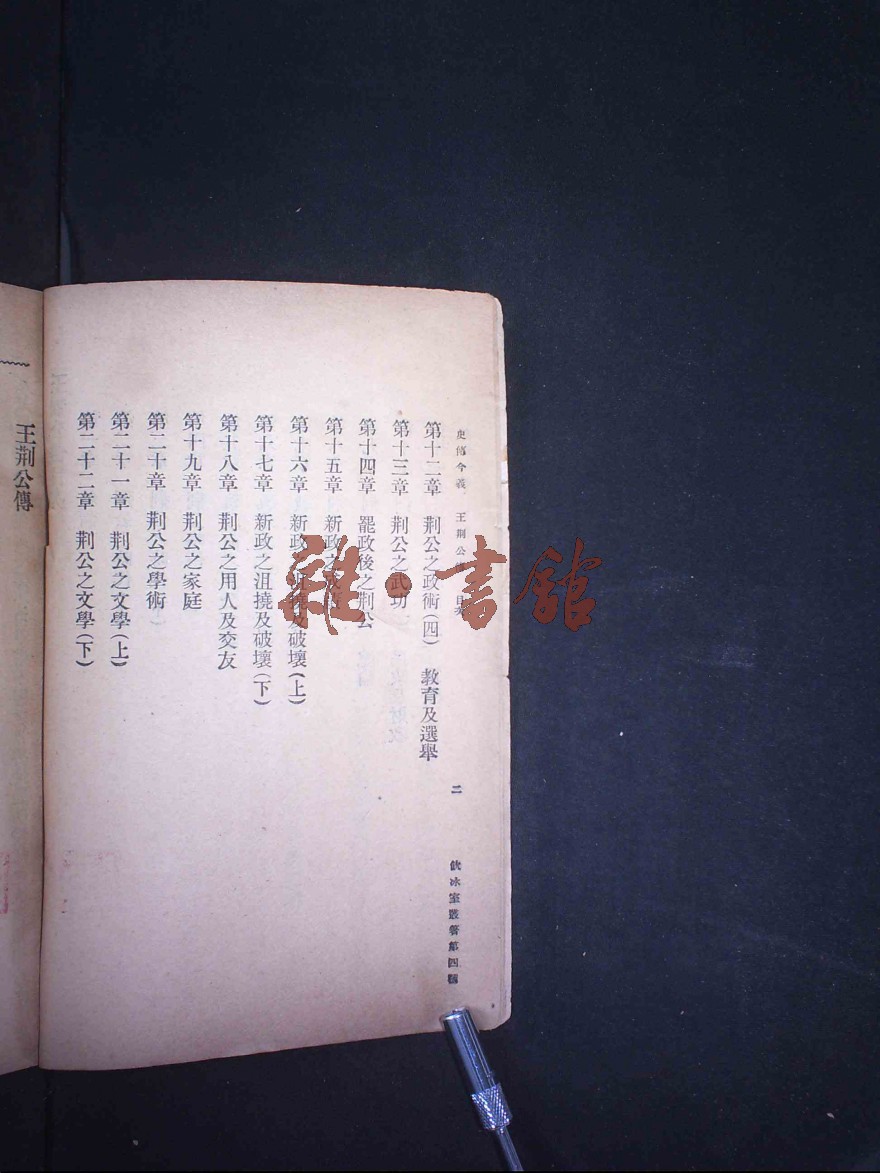 史傳今義 王荊公 目次
第十二章 荊公之政術(四) 教育及選舉
第十三章 荊公之武功
第十四章 罷政後之荊公
第十五章 新政之成
第十六章 新政之沮撓及破壞(上)
第十七章 新政之沮撓及破壞(下)
第十八章 荊公之用人及交友
第十九章 荊公之家庭
第二十章 荊公之學術
第二十一章 荊公之文學(上)
第二十二章 荊公之文學(下)
二
飲冰室叢著第四種
王荊公傳
雜·書館